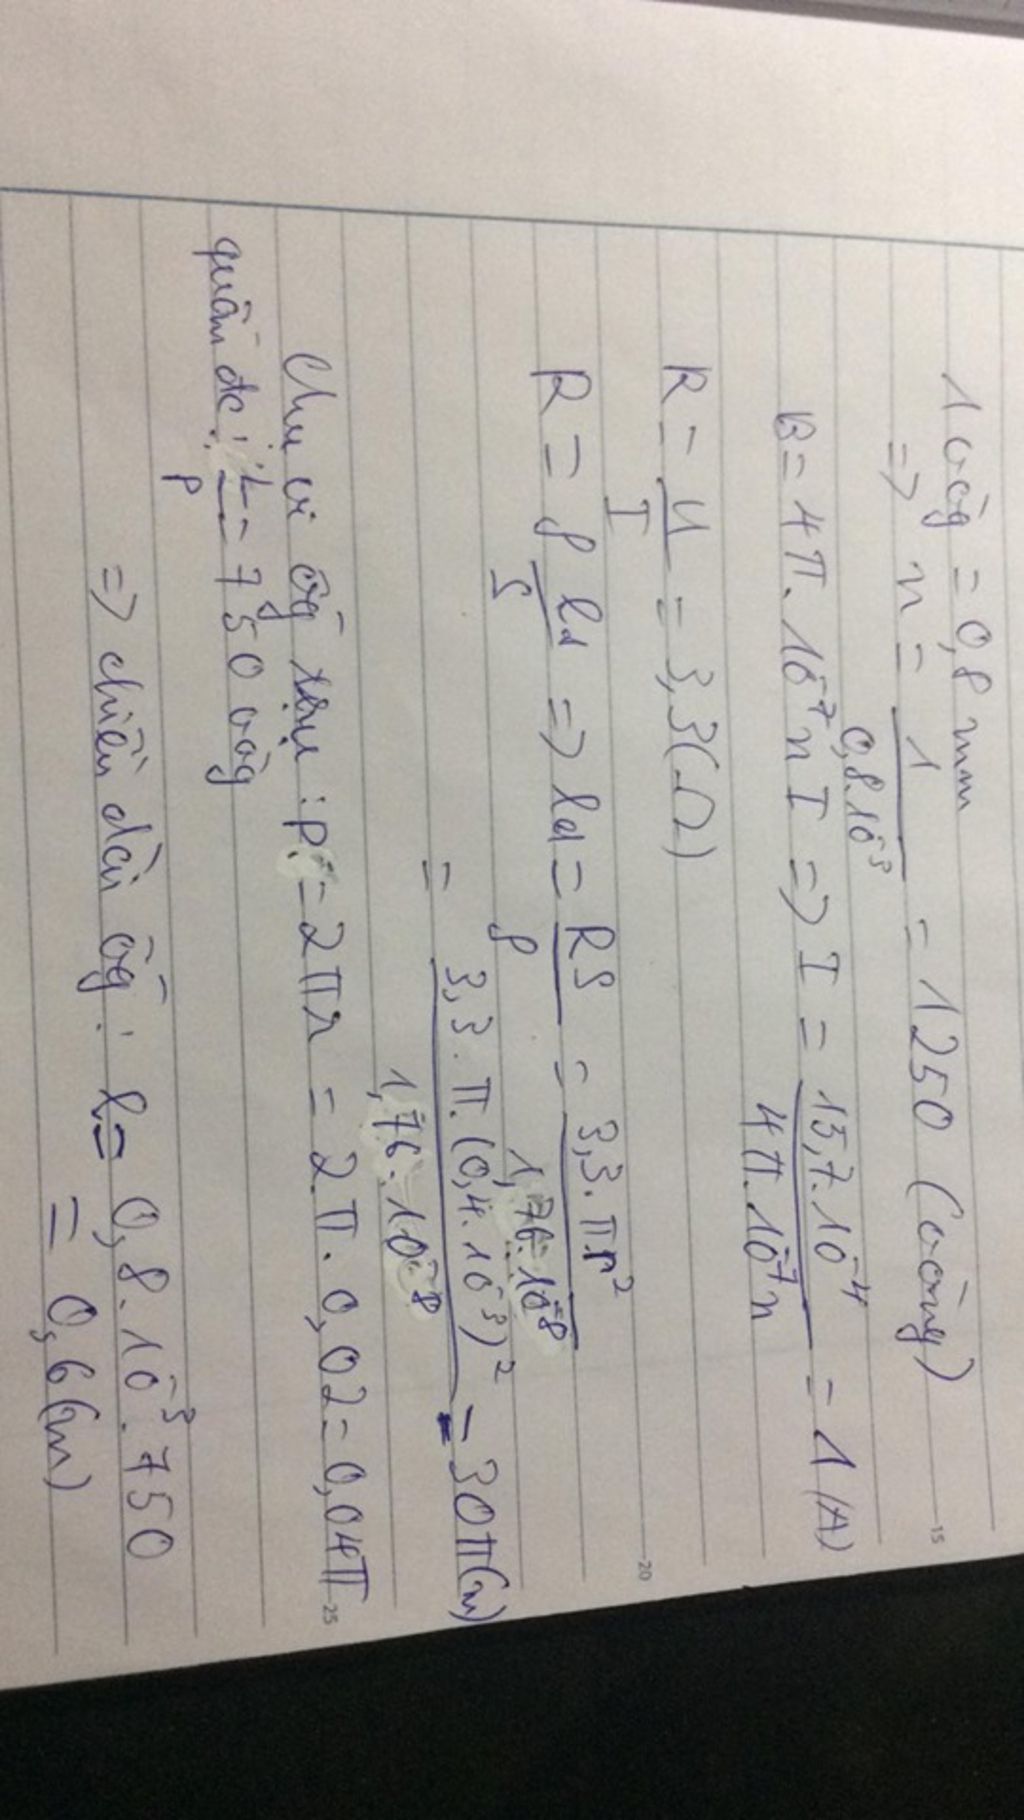 1 vòg = 0,8 mm
=> n = 1 / 0,8.10⁻³ = 1250 (vòng)
B = 4π.10⁻⁷ n I => I = 15,7.10⁻⁴ / 4π.10⁻⁷n = 1 (A)
R = U / I = 3,3 (Ω)
R = ρ ld / S => ld = RS / ρ = 3,3.π.r² / 1,76.10⁻⁸
= 3,3.π.(0,4.10⁻³)² / 1,76.10⁻⁸ = 30π (m)
Chu vi ốg trụ : P = 2πr = 2π.0,02 = 0,04π
quấn đc : L / P = 750 vòg
=> chiều dài ốg : l = 0,8.10⁻³.750
= 0,6 (m)
15
20
25